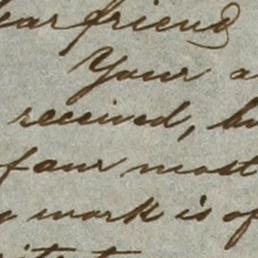 ear friend
Your a
received, bu
four most
work is of